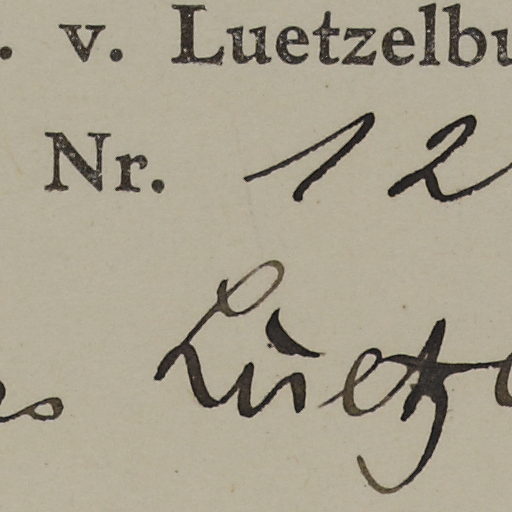 . v. Luetzelbu
Nr. 12
Luetz